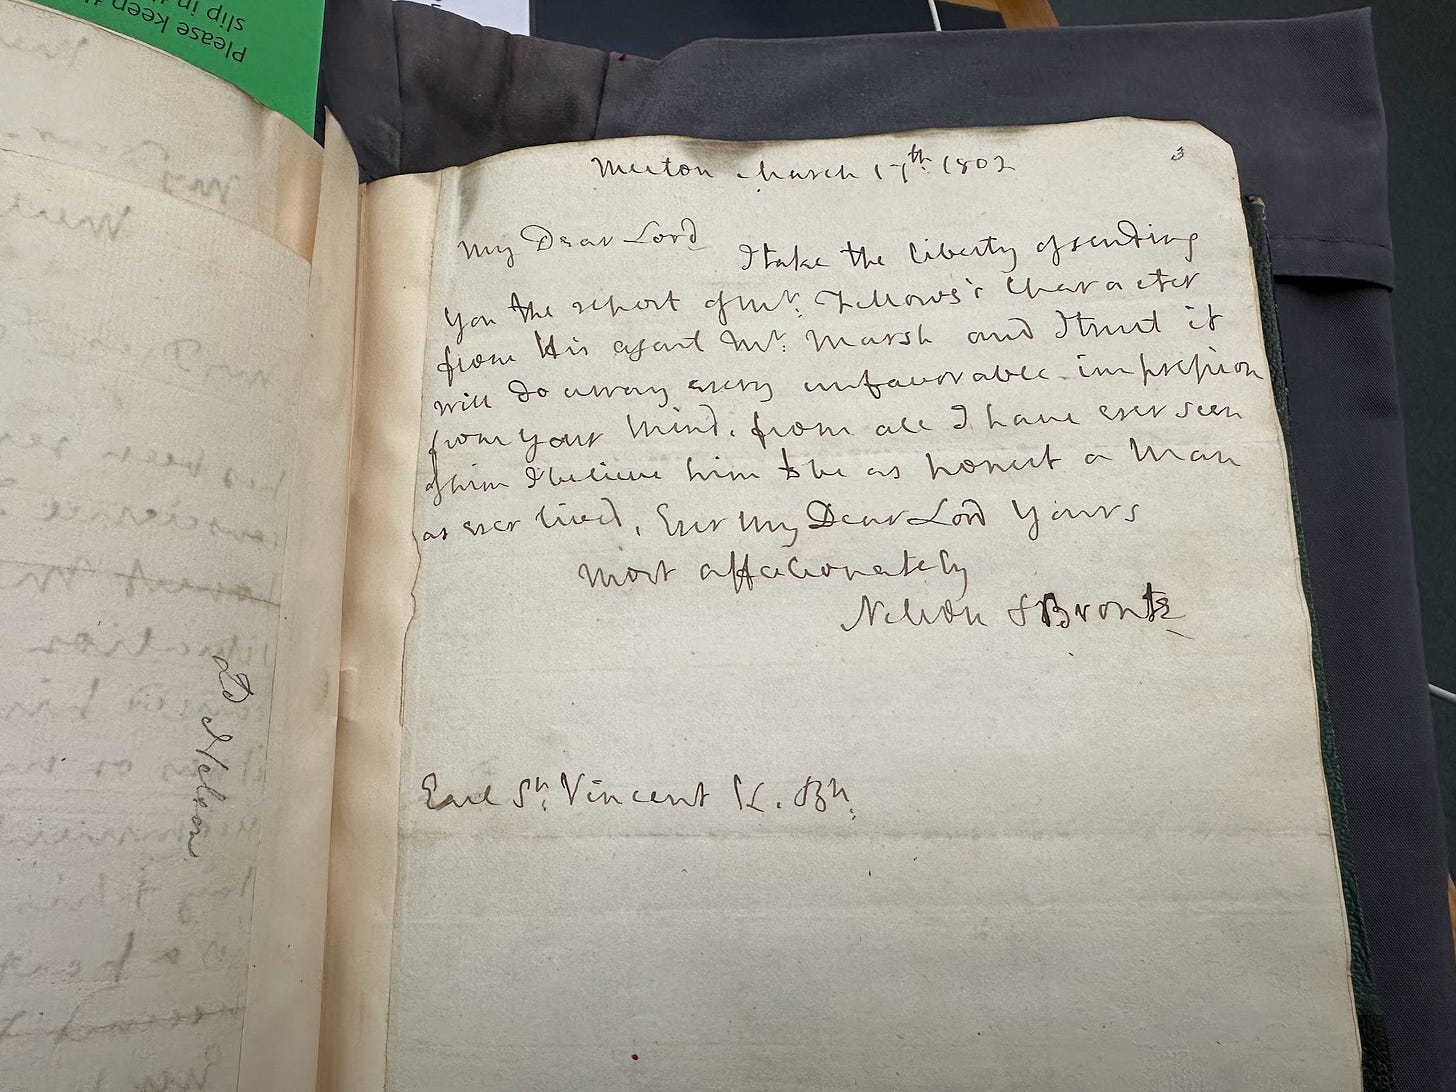 Please keep th
slip in th
Ld Nelson
3
Merton March 17th. 1802
My Dear Lord
I take the liberty of sending
you the report of Mr. Fellows's Character
from His agent Mr. Marsh and I trust it
will do away every unfavorable impression
from your mind, from all I have ever seen
of him I believe him to be as honest a Man
as ever lived, Ever My Dear Lord Yours
most affectionately
Nelson & Bronte
Earl St. Vincent K. Bh.